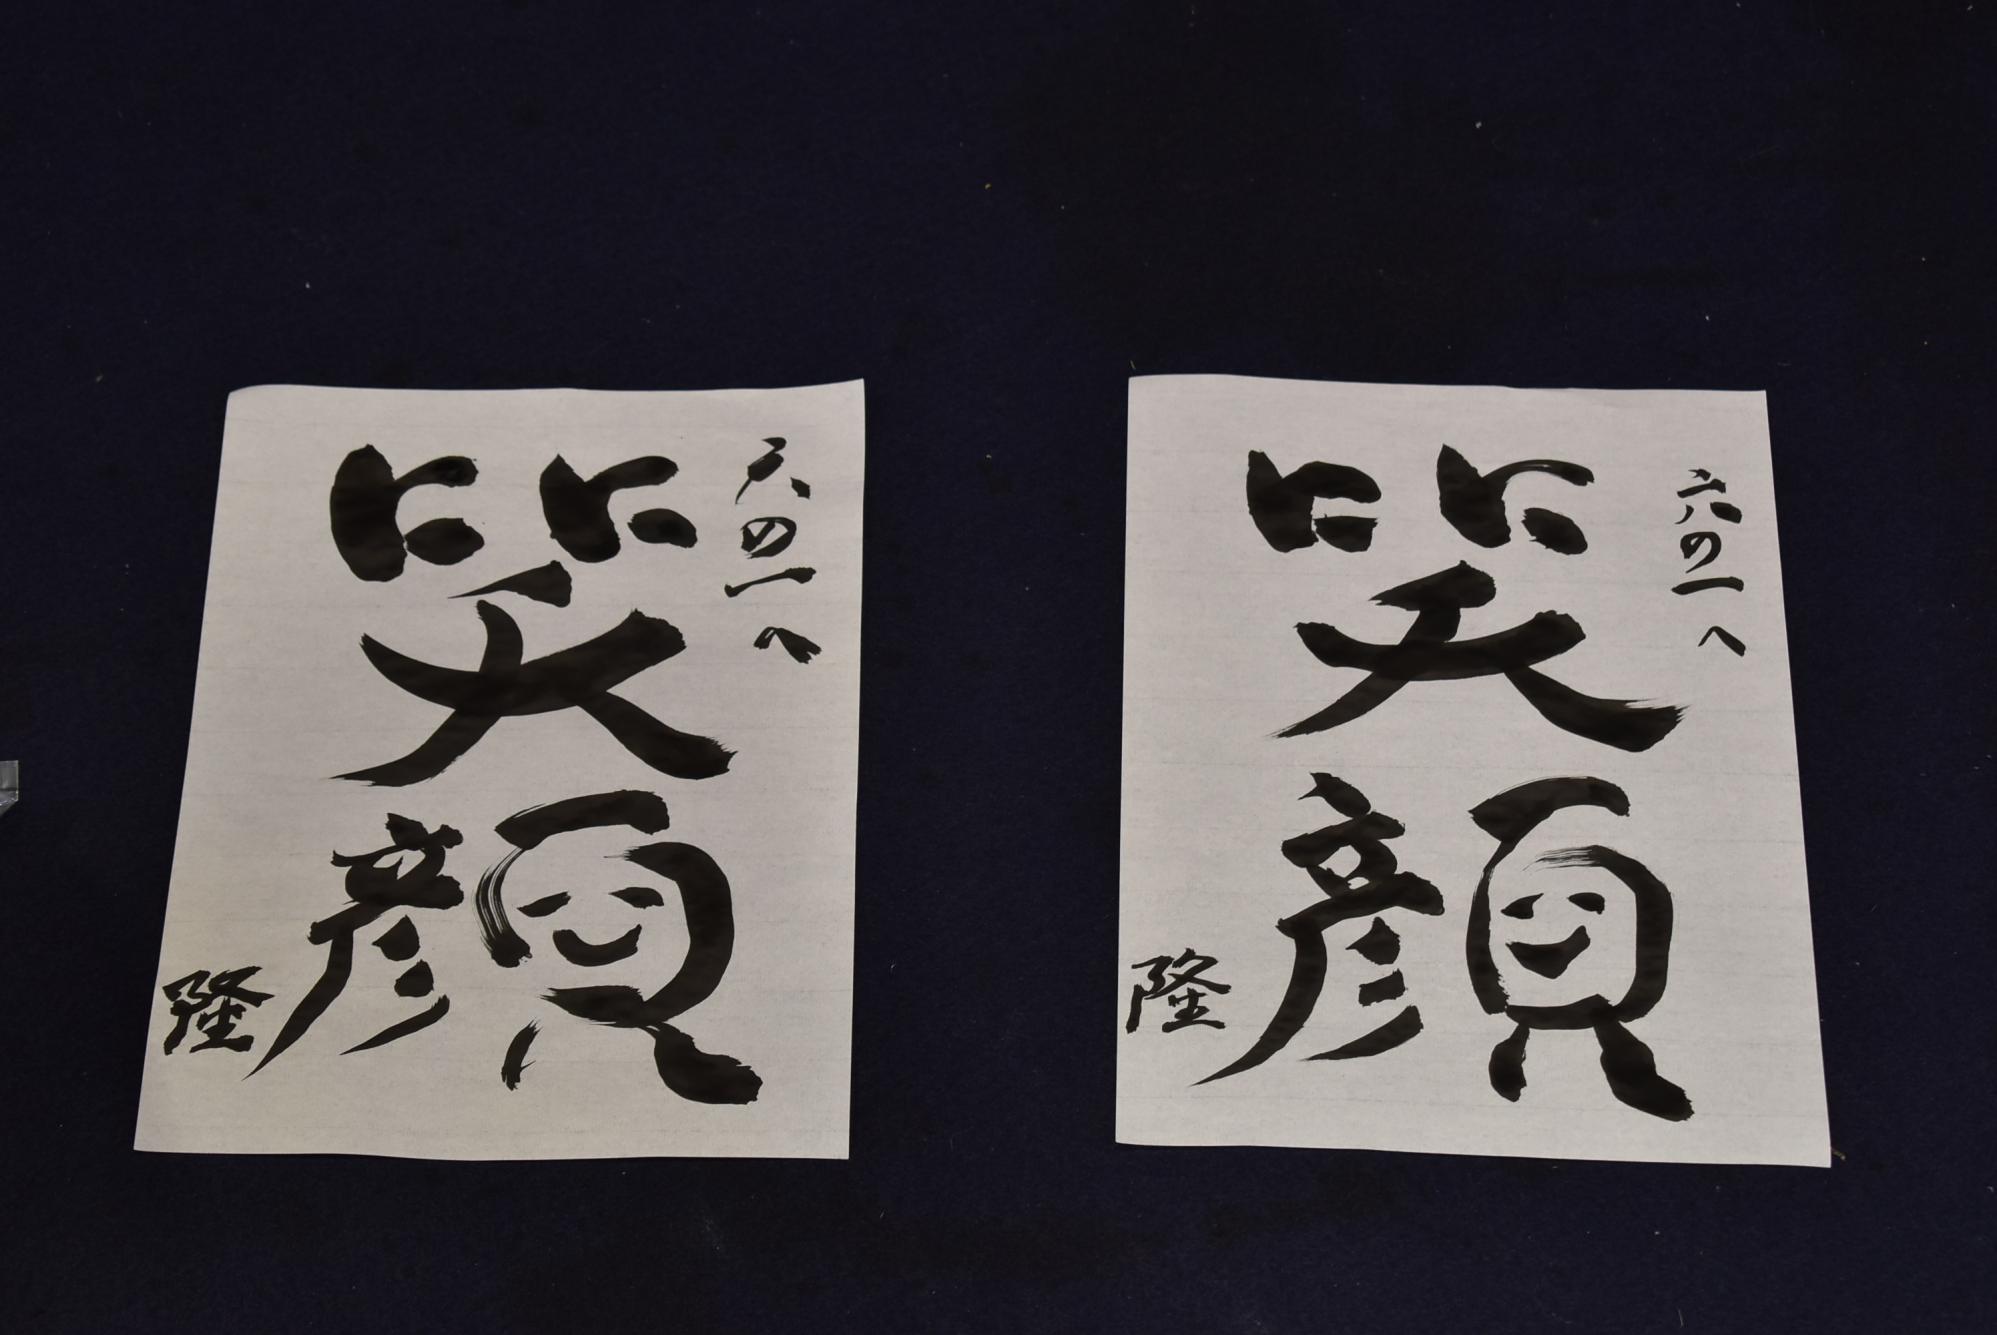 六の一へ
笑顔
隆
六の一へ
笑顔
隆